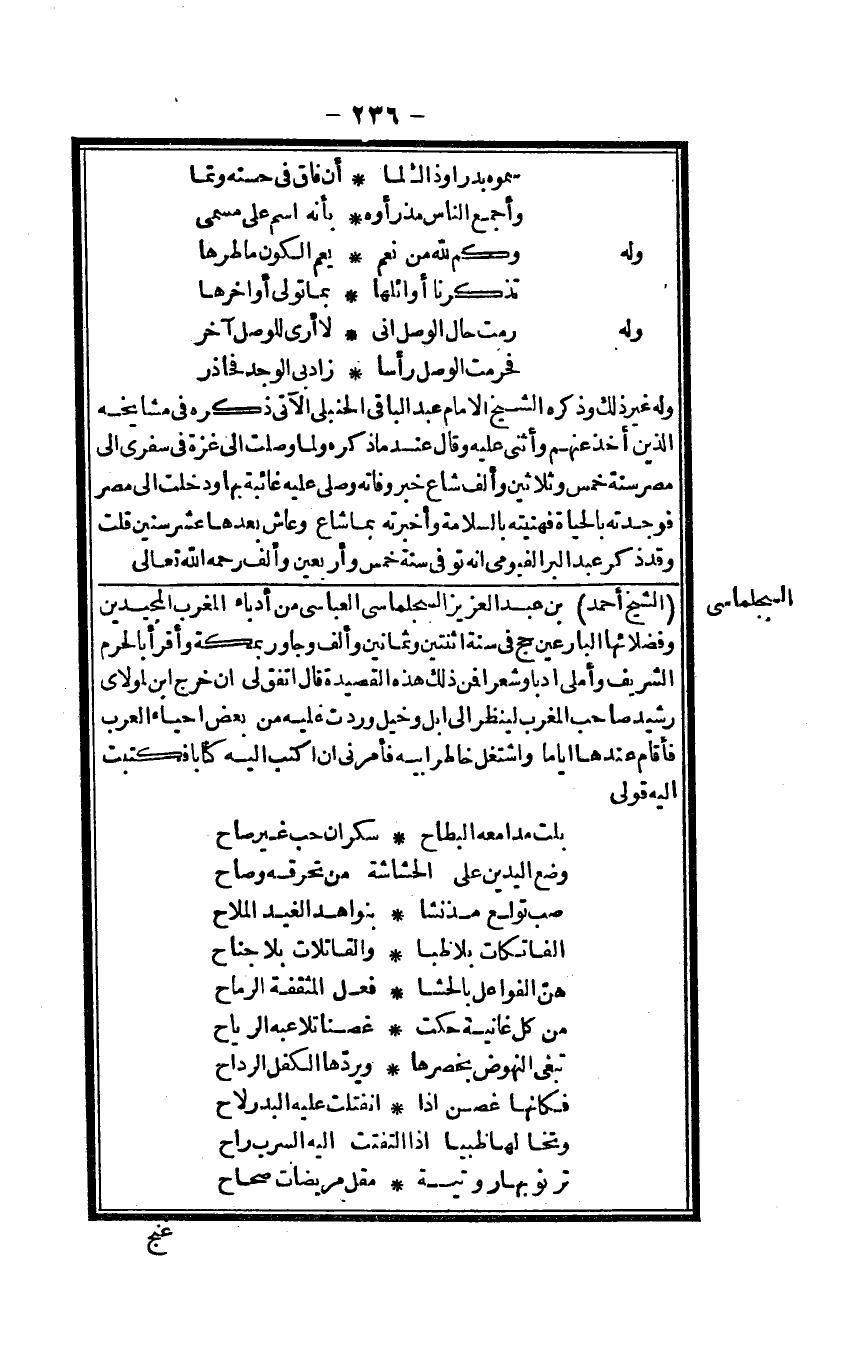 - ٢٣٦ -
سموه بدرا وذا لما * أن فاق فى حسنه وتما
وأجمع الناس مذ رأوه * بأنه اسم على مسمى
وله وكم لله من نعم * يعم الكون ماطرها
تذكرنا أوائلها * بما تولى أواخرها
وله رمت حال الوصل انى * لا أرى للوصل آخر
فحرمت الوصل رأسا * زاد بى الوجد فحاذر
وله غير ذلك وذكره الشيخ الامام عبد الباقى الحنبلى الآتى ذكره فى مشايخه
الذين أخذ عنهم وأثنى عليه وقال عند ما ذكره ولما وصلت الى غزة فى سفرى الى
مصر سنة خمس وثلاثين وألف شاع خبر وفاته وصلى عليه غائبة بها ودخلت الى مصر
فوجدته بالحياة فهنيته بالسلامة وأخبرته بما شاع وعاش بعدها عشر سنين قلت
وقد ذكر عبد البر الفيومى انه توفى سنة خمس وأربعين وألف رحمه الله تعالى
السجلماسى
(الشيخ أحمد) بن عبد العزيز السجلماسى العباسى من أدباء المغرب المجيدين
وفضلائها البارعين حج فى سنة اثنتين وثمانين وألف وجاور بمكة وأقرأ بالحرم
الشريف وأملى ادبا وشعرا فمن ذلك هذه القصيدة قال اتفق لى ان خرج ابن لمولاى
رشيد صاحب المغرب لينظر الى ابل وخيل وردت عليه من بعض احياء العرب
فأقام عندها اياما واشتغل خاطر ابيه فأمرنى ان اكتب اليه كتابا فكتبت
اليه قولى
بلت مدامعه البطاح * سكران حب غير صاح
وضع اليدين على الحشاشة من تحرقه وصاح
صب تولع مذ نشا * بنواهد الغيد الملاح
الفاتكات بلا ظبا * والقاتلات بلا جناح
هن الفواعل بالحشا * فعل المثقفة الرماح
من كل غانية حكت * غصنا تلاعبه الرياح
تبغى النهوض بخصرها * ويردها الكفل الرداح
فكانها غصن اذا * انفتلت عليه البدر لاح
وتخالها ظبيا اذا التفتت اليه السرب راح
ترنو بهاروتية * مقل مريضات صحاح
غنج